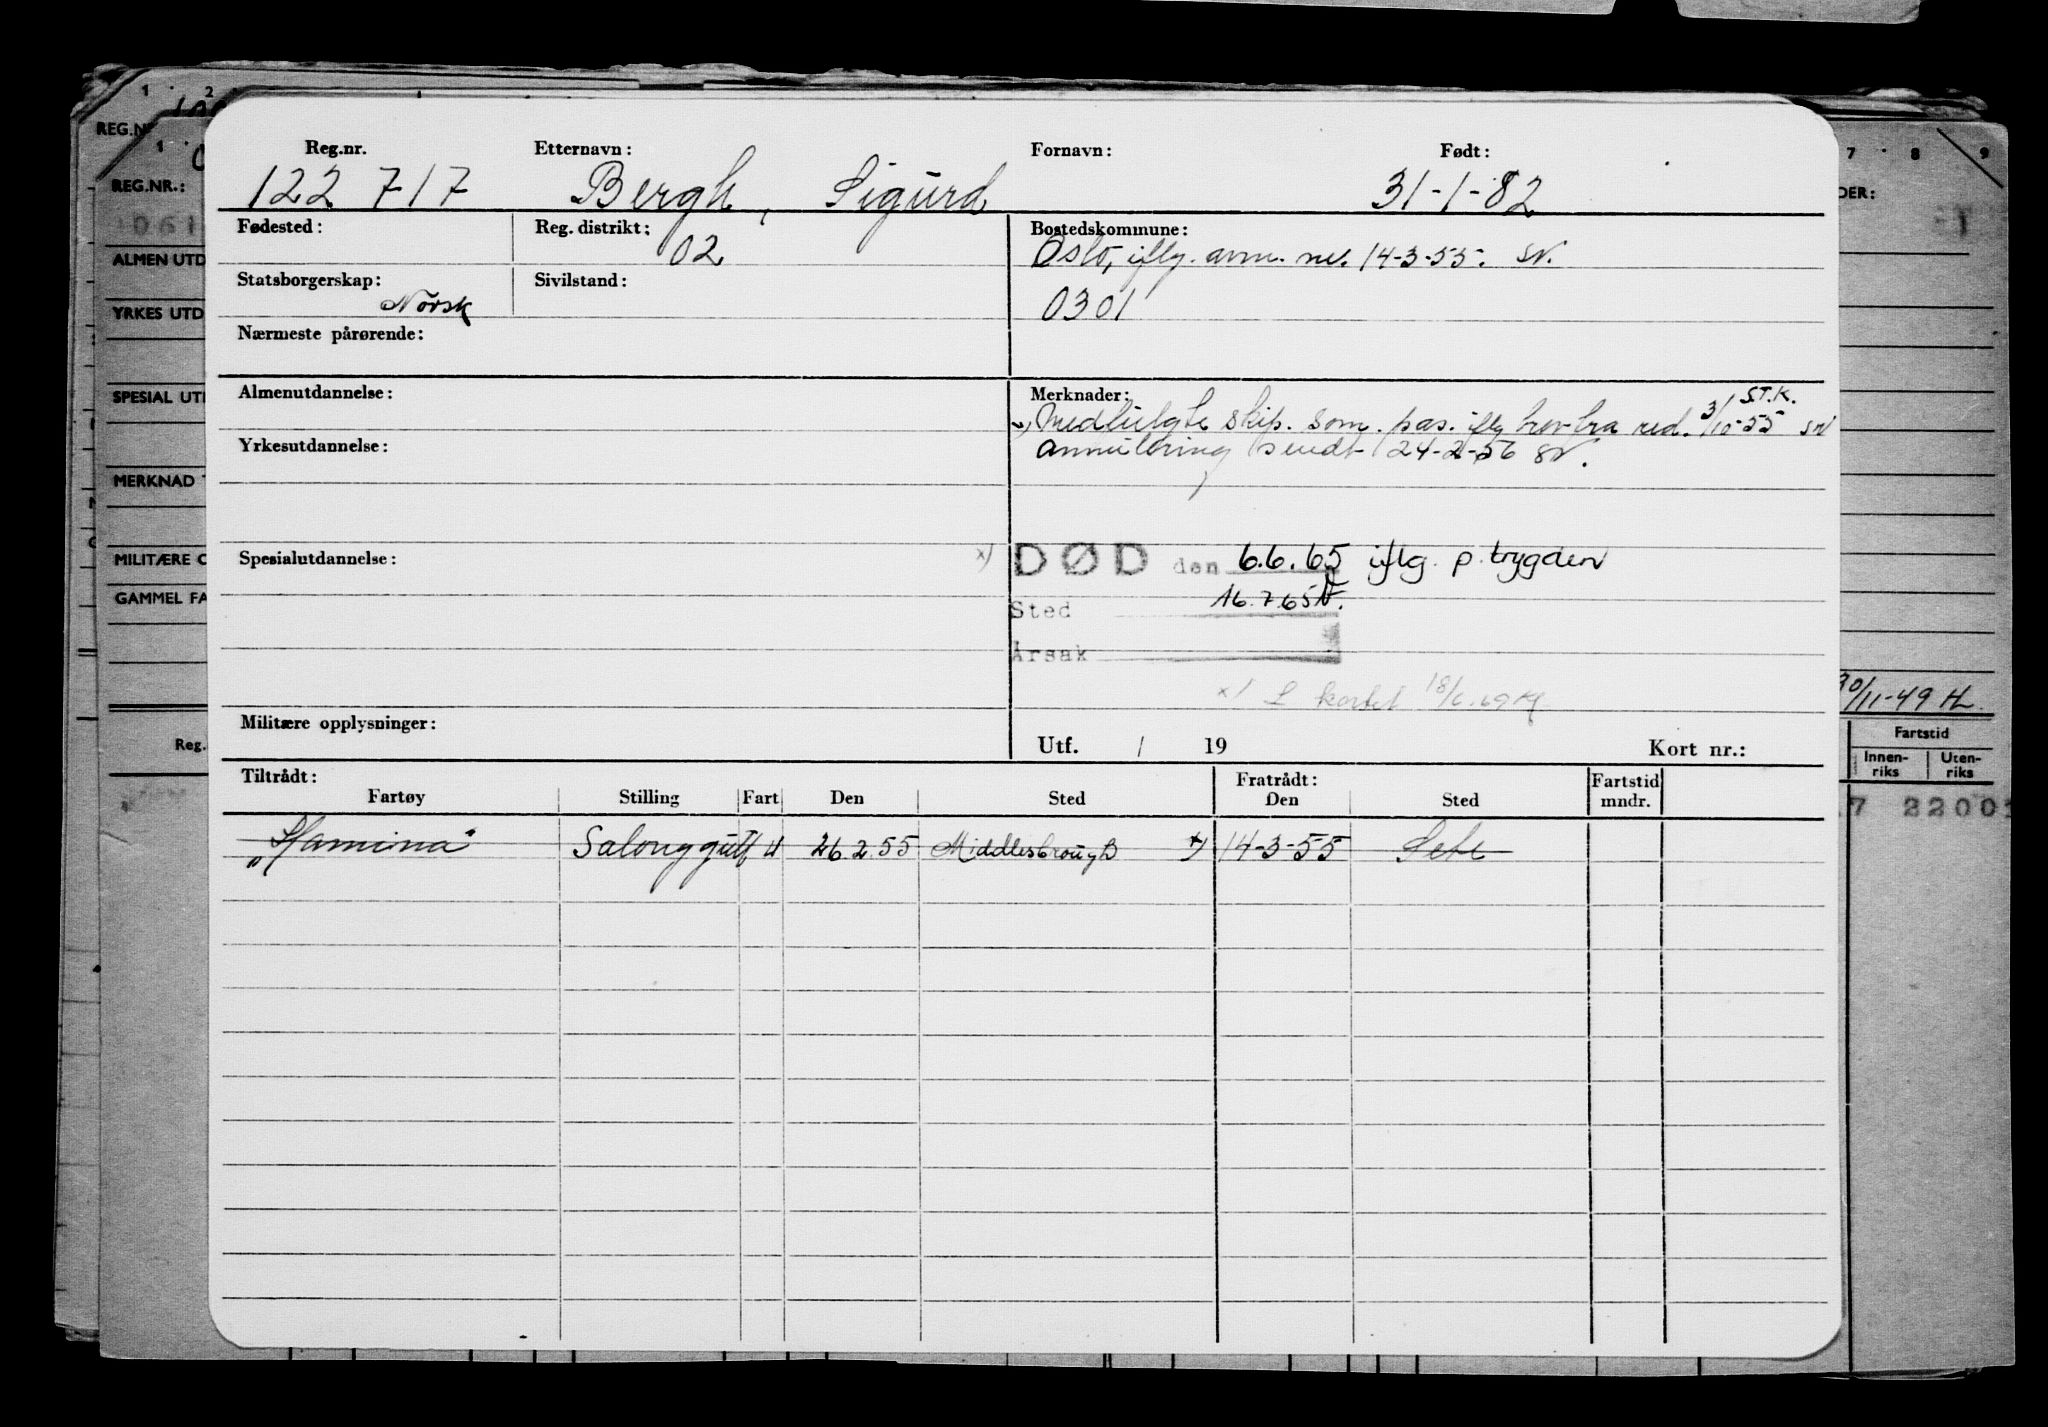 1 2
REG.N
1
REG.NR.:
061
ALMEN UTD
YRKES UTD
SPECIAL UT
MERKNAD
MILITÆRE O
GAMMEL FA
Reg.
Reg.nr. Etternavn: Fornavn: Født:
122 717 Bergh, Sigurd 31-1-82
Fødested: Reg. distrikt: Bostedskommune:
02 Oslo, iflg. avm. nr. 14-3-55. SN.
Statsborgerskap: Sivilstand:
Norsk 0301
Nærmeste pårørende:
Almenutdannelse: Merknader: S.T.K.
Medfulgte skip. som. pas. iflg brev fra red. 3/10-55 SN
Yrkesutdannelse: annulering sendt 24-2-56 SN.
Spesialutdannelse: x) DØD den 6.6.65 iflg. p.trygden
Sted 16.7.65
Årsak
x) kortet 18/6.69
Militære opplysninger:
Utf. / 19 Kort nr.:
Tiltrådt: Fratrådt: Fartstid
Fartøy Stilling Fart Den Sted Den Sted mndr.
Salonggutt U 26.2.55 Middlesbrough x) 14-3-55 Sete
7 8 9
DER:
30/11-49 H.
Fartstid
Innen- Uten-
riks riks
7 22001